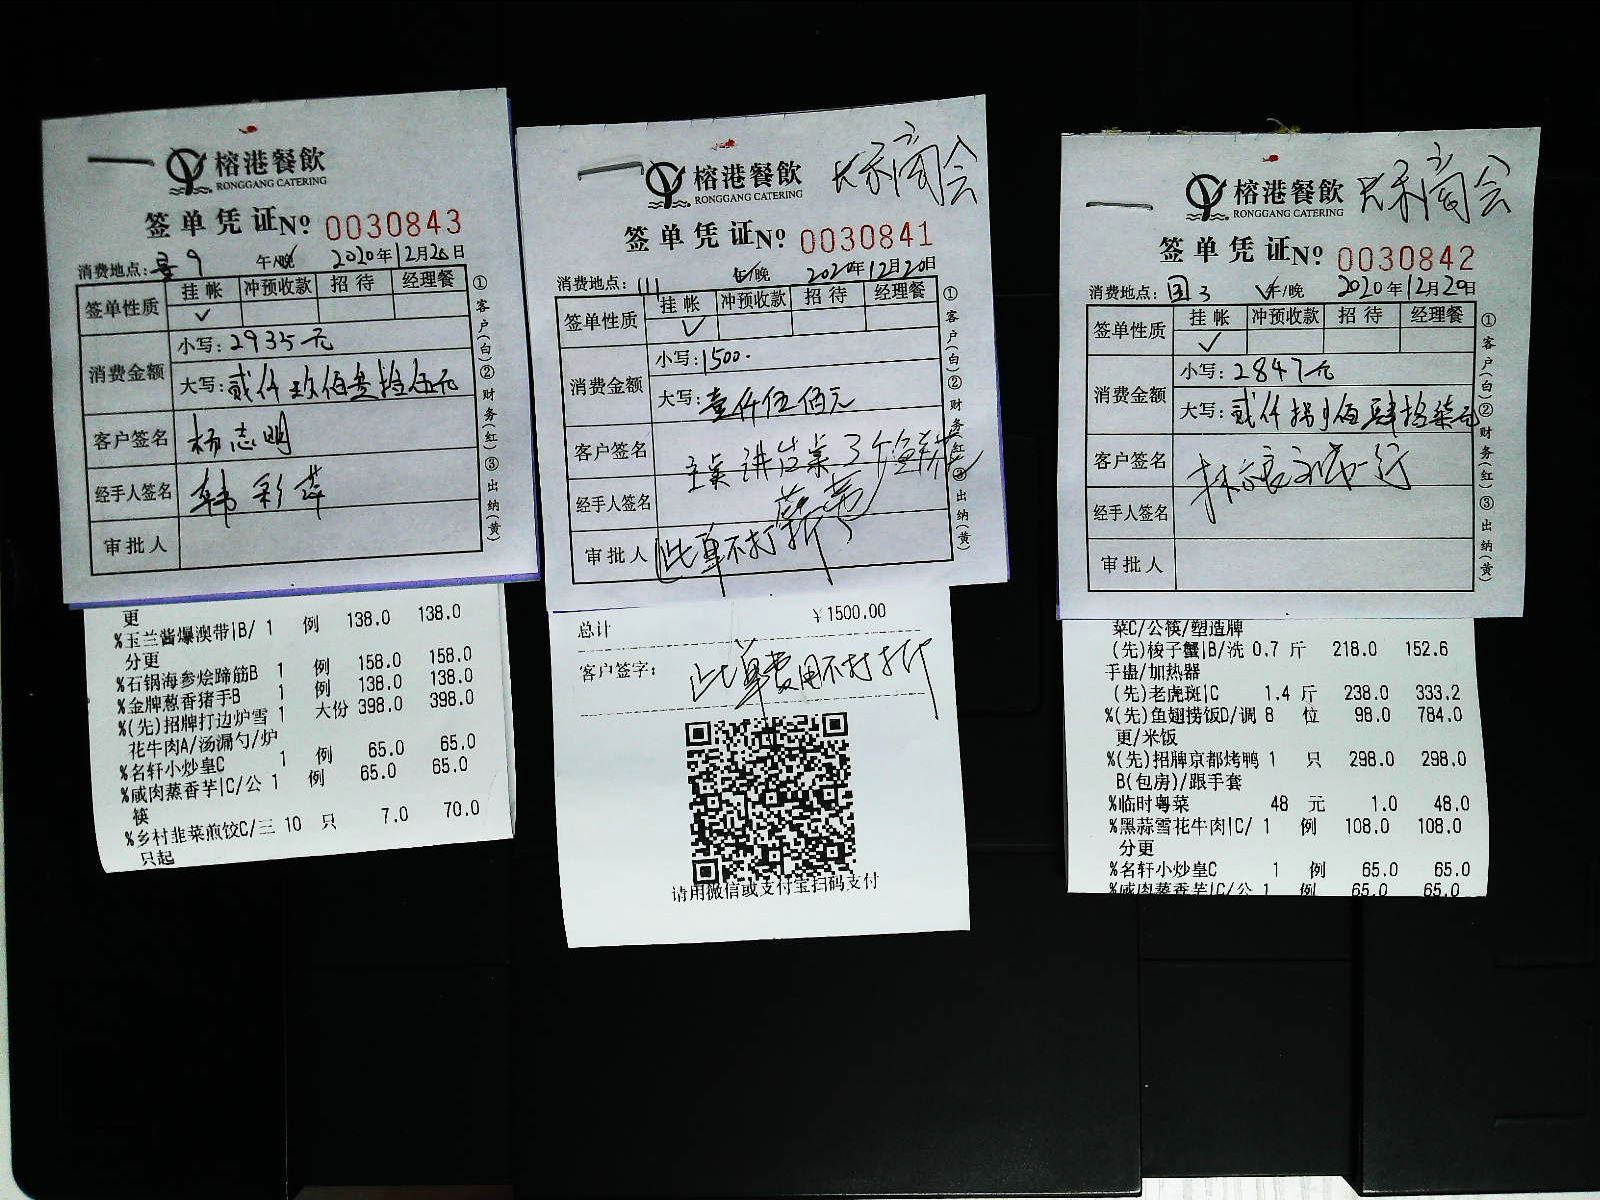 榕港餐飲
RONGGANG CATERING
签单凭证No 0030843
消费地点: 9 午/晚 2020年12月20日
签单性质 挂帐 冲预收款 招待 经理餐
✓
消费金额 小写:2935元
大写:贰仟玖佰叁拾伍元
客户签名 杨志明
经手人签名 韩彩萍
审批人
①客户(白)②财务(红)③出纳(黄)
更
%玉兰酱爆澳带|B/ 1 例 138.0 138.0
分更
%石锅海参烩蹄筋B 1 例 158.0 158.0
%金牌葱香猪手B 1 例 138.0 138.0
%(先)招牌打边炉雪 1 大份 398.0 398.0
花牛肉A/汤漏勺/炉
%名轩小炒皇C 1 例 65.0 65.0
%咸肉蒸香芋|C/公 1 例 65.0 65.0
筷
%乡村韭菜煎饺C/三 10 只 7.0 70.0
只起
榕港餐飲
RONGGANG CATERING
商会
签单凭证No 0030841
消费地点:111 午/晚 2020年12月20日
签单性质 挂帐 冲预收款 招待 经理餐
✓
消费金额 小写:1500.
大写:壹仟伍佰元
客户签名
经手人签名
审批人 此单不打折
①客户(白)②财务(红)③出纳(黄)
总计 ¥1500.00
客户签字: 此单费用不打折
请用微信或支付宝扫码支付
榕港餐飲
RONGGANG CATERING
商会
签单凭证No 0030842
消费地点:国3 午/晚 2020年12月20日
签单性质 挂帐 冲预收款 招待 经理餐
✓
消费金额 小写:2847元
大写:贰仟捌佰肆拾柒元
客户签名
经手人签名
审批人
①客户(白)②财务(红)③出纳(黄)
菜C/公筷/塑造牌
(先)梭子蟹|B/洗 0.7 斤 218.0 152.6
手盅/加热器
(先)老虎斑|C 1.4 斤 238.0 333.2
%(先)鱼翅捞饭D/调 8 位 98.0 784.0
更/米饭
%(先)招牌京都烤鸭 1 只 298.0 298.0
B(包房)/跟手套
%临时粤菜 48 元 1.0 48.0
%黑蒜雪花牛肉|C/ 1 例 108.0 108.0
分更
%名轩小炒皇C 1 例 65.0 65.0
%咸肉蒸香芋|C/公 1 例 65.0 65.0